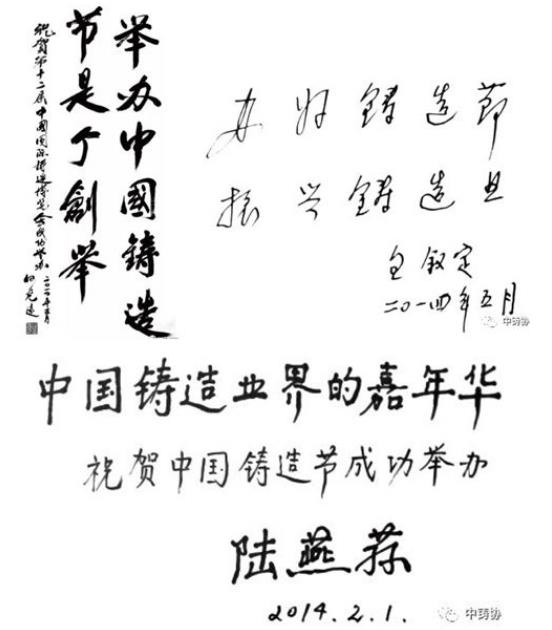 举办中國铸造
节是个創举
祝贺第十二届中國国际铸造博览会成功举办
何光远
办好铸造節
振兴铸造业
二〇一四年五月
中铸协
中国铸造业界的嘉年华
祝贺中国铸造节成功举办
陆燕荪
2014.2.1.
中铸协